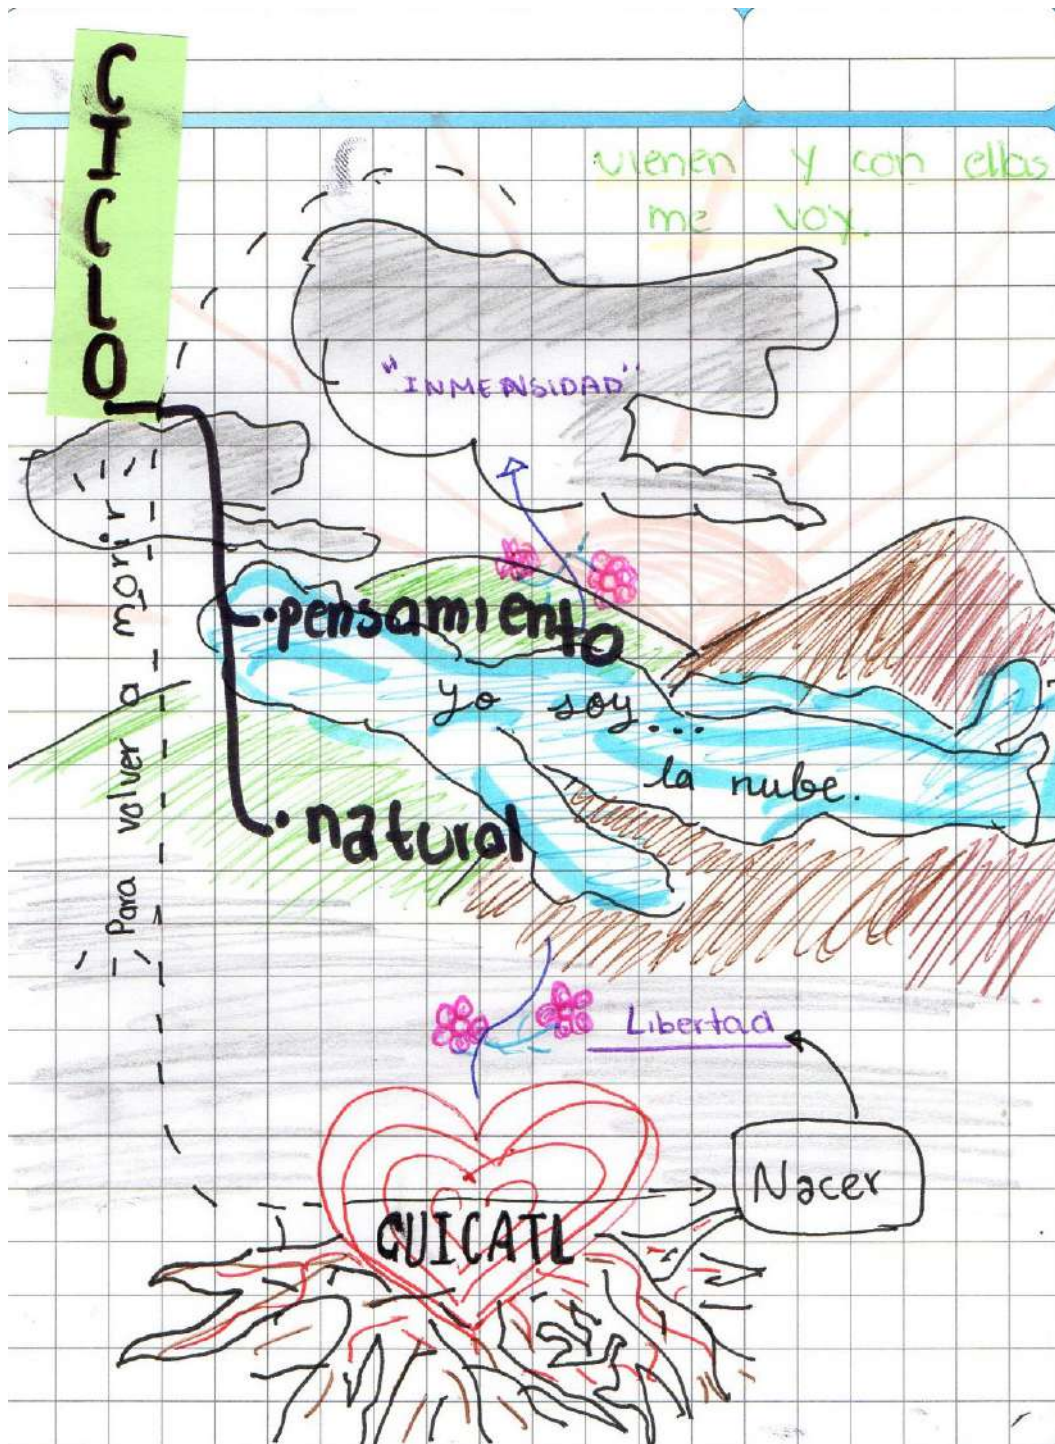 CICLO
vienen y con ellas
me voy.
"INMENSIDAD"
Para volver a morir
·pensamiento
yo soy...
la nube.
·natural
Libertad
Nacer
CUICATL